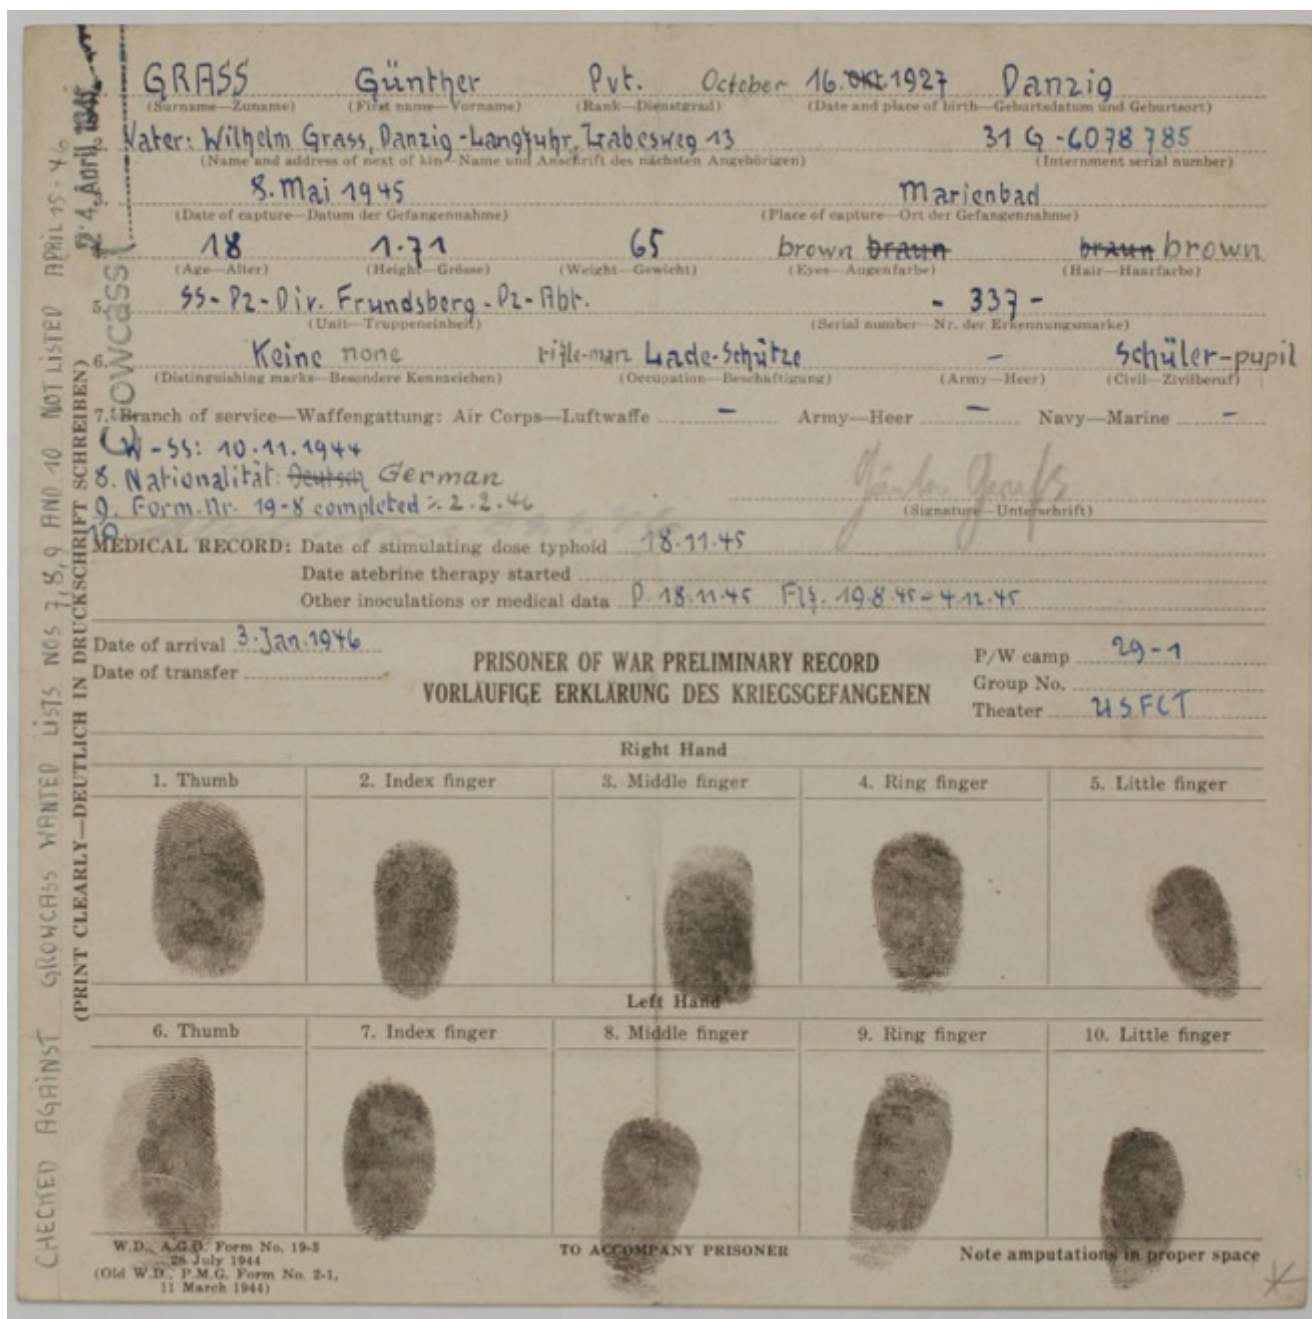 GRASS Günther Pvt. October 16. Okt. 1927 Danzig
(Surname—Zuname) (First name—Vorname) (Rank—Dienstgrad) (Date and place of birth—Geburtsdatum und Geburtsort)
Vater: Wilhelm Grass, Danzig-Langfuhr, Labesweg 13 31 G-6078 785
(Name and address of next of kin—Name und Anschrift des nächsten Angehörigen) (Internment serial number)
8. Mai 1945 Marienbad
(Date of capture—Datum der Gefangennahme) (Place of capture—Ort der Gefangennahme)
18 1.71 65 brown braun braun brown
(Age—Alter) (Height—Grösse) (Weight—Gewicht) (Eyes—Augenfarbe) (Hair—Haarfarbe)
5. SS-Pz-Div. Frundsberg-Pz-Abt. - 337 -
(Unit—Truppeneinheit) (Serial number—Nr. der Erkennungsmarke)
6. Keine none rifle-man Lade-Schütze - Schüler-pupil
(Distinguishing marks—Besondere Kennzeichen) (Occupation—Beschäftigung) (Army—Heer) (Civil—Zivilberuf)
7. Branch of service—Waffengattung: Air Corps—Luftwaffe - Army—Heer - Navy—Marine -
W-SS: 10.11.1944
8. Nationalität: Deutsch German
9. Form.Nr. 19-8 completed 2.2.46
Günter Graß
(Signature—Unterschrift)
10
MEDICAL RECORD: Date of stimulating dose typhoid 18.11.45
Date atebrine therapy started
Other inoculations or medical data D. 18.11.45 Flf. 19.8.45-4.12.45
Date of arrival 3.Jan.1946
Date of transfer
PRISONER OF WAR PRELIMINARY RECORD
VORLÄUFIGE ERKLÄRUNG DES KRIEGSGEFANGENEN
P/W camp 29-1
Group No.
Theater USFCT
Right Hand
1. Thumb 2. Index finger 3. Middle finger 4. Ring finger 5. Little finger
Left Hand
6. Thumb 7. Index finger 8. Middle finger 9. Ring finger 10. Little finger
W.D., A.G.O. Form No. 19-3
28 July 1944
(Old W.D., P.M.G. Form No. 2-1,
11 March 1944)
TO ACCOMPANY PRISONER
Note amputations in proper space
CHECKED AGAINST GROWCASS WANTED LISTS NOS 7,8,9 AND 10 NOT LISTED APRIL 15-46
(PRINT CLEARLY—DEUTLICH IN DRUCKSCHRIFT SCHREIBEN)
Crowcass
24. April